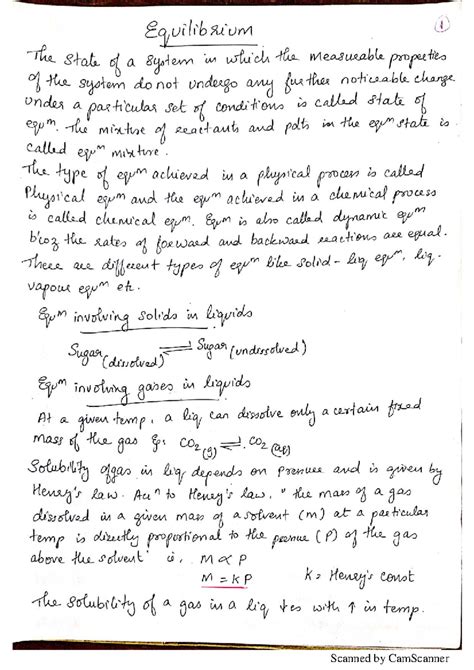 Equilibrium
1
The state of a system in which the measurable properties
of the system do not undergo any further noticeable change
under a particular set of conditions is called state of
equm. The mixture of reactants and pdts in the equm state is
called equm mixture.
The type of equm achieved in a physical process is called
Physical equm and the equm achieved in a chemical process
is called chemical equm. Equm is also called dynamic equm
b'coz the rates of forward and backward reactions are equal.
There are different types of equm like solid - liq equm, liq.
vapour equm etc.
Equm involving solids in liquids
Sugar (dissolved) ⇌ Sugar (undissolved)
Equm involving gases in liquids
At a given temp, a liq can dissolve only a certain fixed
mass of the gas Eg: CO2(g) ⇌ CO2(aq)
Solubility of gas in liq depends on pressure and is given by
Henry's law. Acn to Henry's law, "the mass of a gas
dissolved in a given mass of a solvent (m) at a particular
temp is directly proportional to the pressure (P) of the gas
above the solvent" ie, M ∝ P
M = KP K = Henry's const
The solubility of a gas in a liq ↓es with ↑ in temp.
Scanned by CamScanner